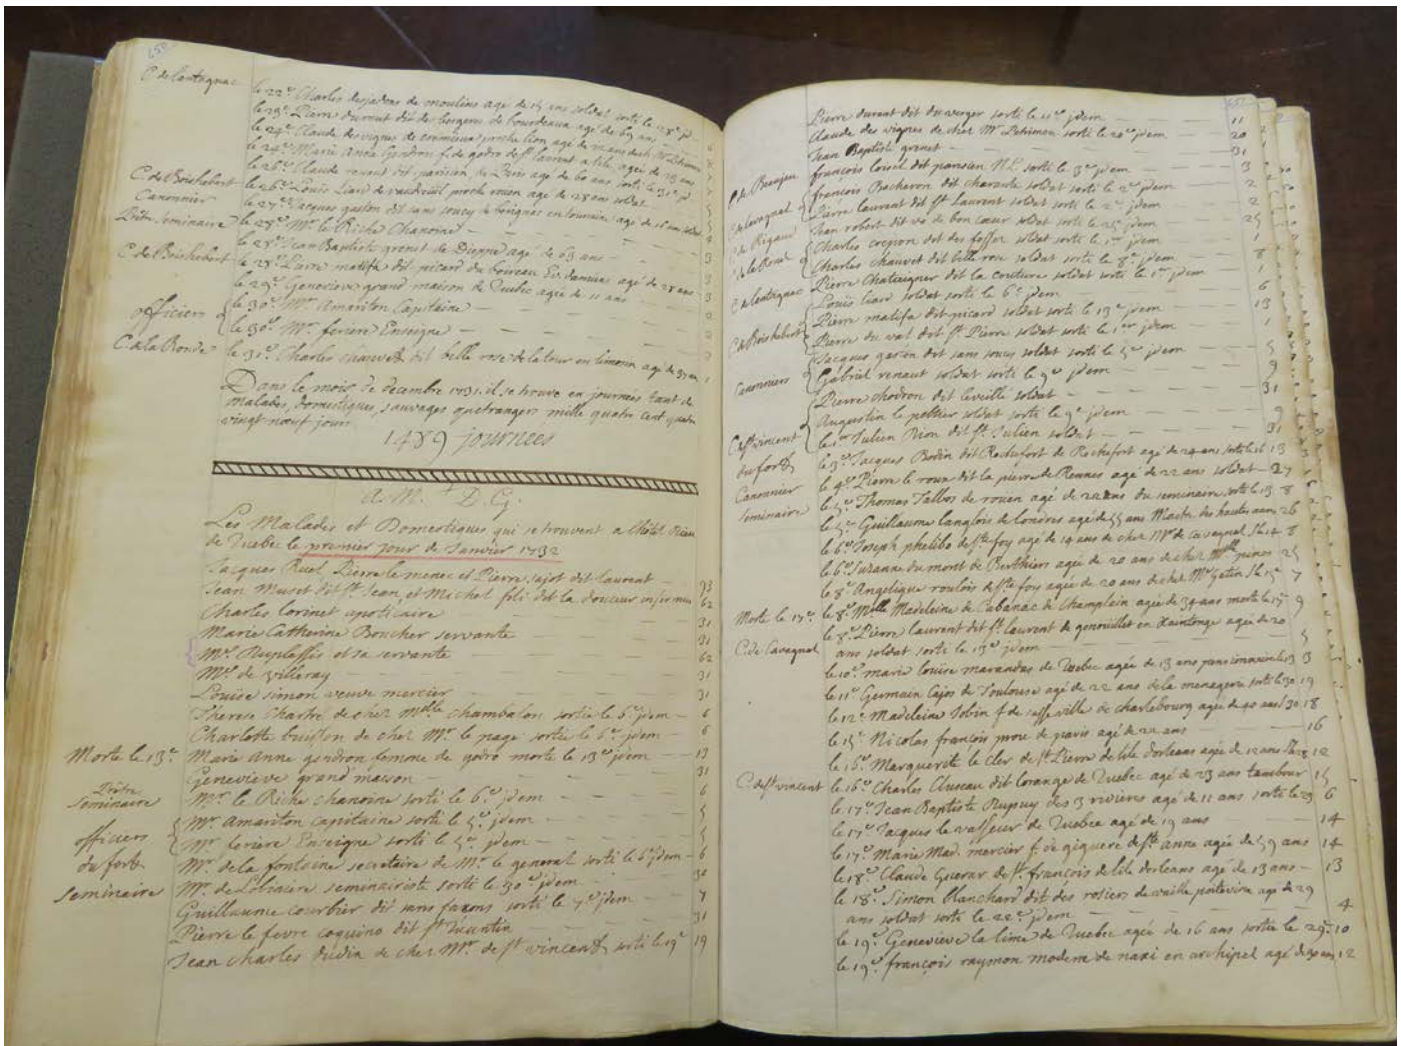 650
C. de Contagnac
le 22e Charles desjadons de moulins agé de 15 ans soldat sorti le 28e jd
le 23e Pierre durant dit de bergerac de bourdeaux agé de 69 ans
le 24e Claude des vignes de proche lion agé de 22 ans
le 24e Marie Anne Gendron f. de godro de st laurent a lile agée de 23 ans
le 26e Claude renaut dit parisien de Paris agé de 60 ans sorti le 31e jd
C. de Boishebert le 26e Louis Liard de vaudreuil proche rouen agé de 28 ans soldat
Canonnier le 27e Jacques gaston dit sans soucy de en touraine agé de 16 ans soldat
Prêtre Seminaire le 28e Mr le Riche Chanoine
le 28e Jean Baptiste grenet de Dieppe agé de 63 ans
C. de Boishebert le 28e Pierre matifa dit picard du agé de 28 ans
le 29e Genevieve grand maison de Quebec agée de 11 ans
officiers le 30e Mr Amariton Capitaine
le 30e Mr feriere Enseigne
C. de la Ronde le 31e Charles chauvet dit belle rose de la tour en limosin agé de 37 ans 1
Dans le mois de decembre 1731. il se trouve en journées tant de
malades, domestiques, sauvages qu'etrangers mille quatre cent quatre
vingt neuf jours
1489 journees
A. M. + D. G.
Les Malades et Domestiques qui se trouvent a l'hôtel Dieu
de Quebec le premier jour de Janvier 1732
Jacques Ruel Pierre le menec et Pierre sajot dit laurent 93
Jean Muset dit st Jean, et Michel foli dit la douceur infirmier 62
Charles lorinet apoticaire 31
Marie Catherine Boucher servante 31
Me Duplessis et sa servante 62
Me de villeray 31
Louise simon veuve mercier 31
Therese Chartré de chez Mdlle Chambalon sortie le 6e jdem 6
Charlotte buisson de chez Mr le page sortie le 6e jdem 6
Morte le 13e Marie Anne gendron femme de godro morte le 13e jdem 13
Genevieve grand maison 31
Prêtre Seminaire Mr le Riche chanoine sorti le 6e jdem 6
officiers Mr Amariton capitaine sorti le 5e jdem 5
du fort Mr feriere Enseigne sorti le 5e jdem 5
Mr de la fontaine secretaire de Mr le general sorti le 6e jdem 6
Seminaire Mr de Lotbiniere seminairiste sorti le 30e jdem 30
Guillaume courbier dit sans façons sorti le 7e jdem 7
Pierre le fevre coquino dit st Quantin 31
Jean Charles dudin de chez Mr de st vincent sorti le 19e 19
651
Pierre durant dit duverger sorti le 11e jdem 11
Claude des vignes de chez Mr sorti le 20e jdem 20
Jean Baptiste grenet 31
C. de Beaujeu françois loisel dit parisien sorti le 3e jdem 3
C. de Cavagnal françois Bacheron dit soldat sorti le 2e jdem 2
Pierre laurent dit st Laurent soldat sorti le 2e jdem 2
C. de Rigaud Jean robert dit va de bon cœur soldat sorti le 25e jdem 25
C. de la Rond Charles crepon dit des fosses soldat sorti le 1er jdem 1
Charles chauvet dit belle rose soldat sorti le 8e jdem 8
C. de Contagnac Pierre Chataigner dit la couture soldat sorti le 1er jdem 1
Louis liard soldat sorti le 6e jdem 6
C. de Boishebert Pierre matifa dit picard soldat sorti le 13e jdem 13
Pierre du val dit st Pierre soldat sorti le 1er jdem 1
Canonniers Jacques gaston dit sans soucy soldat sorti le 5e jdem 5
Gabriel renaut soldat sorti le 9e jdem 9
Pierre chodron dit leveillé soldat 31
C. st vincent Augustin le peltier soldat sorti le 9e jdem 9
le 1er Julien Rion dit st Julien soldat 31
du fort le 3e Jacques Bodin dit Rochefort de Rochefort agé de 24 ans sorti le 15 13
Canonnier le 4e Pierre le roux dit la pierre de Rennes agé de 22 ans soldat 27
Seminaire le 5e Thomas Tallbos de rouen agé de 22 ans du seminaire sorti le 13 8
le 5e Guillaume langlois de londres agé de 55 ans Maitre des hautes œuv 26
le 6e Joseph phelibo de ste foy agé de 14 ans de chez Mr de Cavagnal 8
le 6e Suzanne du mont de Berthier agée de 20 ans de chez Mdlle 25
le 8e Angelique roulois de ste foy agée de 20 ans de chez Mr 7
Morte le 17e le 8e Mdlle Madeleine de Cabanac de Champlain agée de 34 ans morte le 17e 9
C. de Cavagnal le 8e Pierre laurent dit st laurent de genouillet en Xaintonge agé de 20
ans soldat sorti le 13e jdem 5
le 10e marie louise marandas de Quebec agée de 13 ans pensionnaire 3
le 11e Germain Cajos de Toulouse agé de 22 ans de la menagerie sorti le 30 19
le 12e Madeleine Tobin f. de de charlebourg agée de 40 ans 18
le 15e Nicolas françois prose de paris agé de 22 ans 16
le 16e Marguerite le cler de st Pierre de lile dorleans agée de 12 ans 12
C. de st vincent le 16e Charles Cluseau dit lorange de Quebec agé de 23 ans tambour 15
le 17e Jean Baptiste Dupuy des 3 rivières agé de 11 ans sorti le 23 6
le 17e Jacques le vasseur de Quebec agé de 19 ans 14
le 17e Marie Mad. mercier f. de giguere de ste anne agée de 59 ans 14
le 18e Claude Guerar de st françois de lile dorleans agé de 13 ans 13
le 18e Simon blanchard dit des rosiers de poitevine agé de 29
ans soldat sorti le 22e jdem 4
le 19e Genevieve la lime de Quebec agée de 16 ans sortie le 29e 10
le 19e françois raymon modene de naxi en archipel agé de ans 12